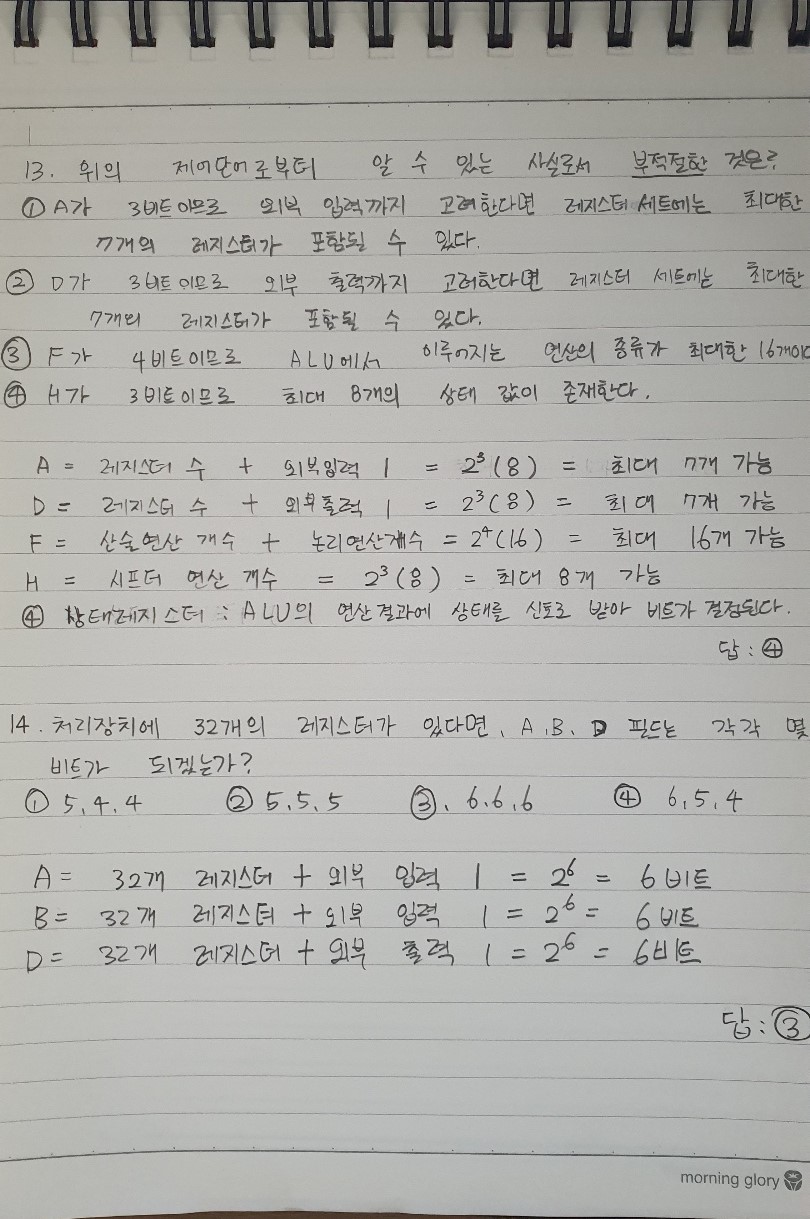 13. 위의 제어단어로부터 알 수 있는 사실로서 부적절한 것은?
① A가 3비트이므로 외부 입력까지 고려한다면 레지스터 세트에는 최대한
7개의 레지스터가 포함될 수 있다.
② D가 3비트이므로 외부 출력까지 고려한다면 레지스터 세트에는 최대한
7개의 레지스터가 포함될 수 있다.
③ F가 4비트이므로 ALU에서 이루어지는 연산의 종류가 최대한 16개이다
④ H가 3비트이므로 최대 8개의 상태 값이 존재한다.
A = 레지스터 수 + 외부입력 1 = 2³(8) = 최대 7개 가능
D = 레지스터 수 + 외부출력 1 = 2³(8) = 최대 7개 가능
F = 산술연산 개수 + 논리연산개수 = 2⁴(16) = 최대 16개 가능
H = 시프터 연산 개수 = 2³(8) = 최대 8개 가능
④ 상태레지스터 : ALU의 연산결과에 상태를 신호로 받아 비트가 결정된다.
답 : ④
14. 처리장치에 32개의 레지스터가 있다면, A, B, D 필드는 각각 몇
비트가 되겠는가?
① 5, 4, 4 ② 5, 5, 5 ③. 6, 6, 6 ④ 6, 5, 4
A = 32개 레지스터 + 외부 입력 1 = 2⁶ = 6비트
B = 32개 레지스터 + 외부 입력 1 = 2⁶ = 6비트
D = 32개 레지스터 + 외부 출력 1 = 2⁶ = 6비트
답 : ③
morning glory